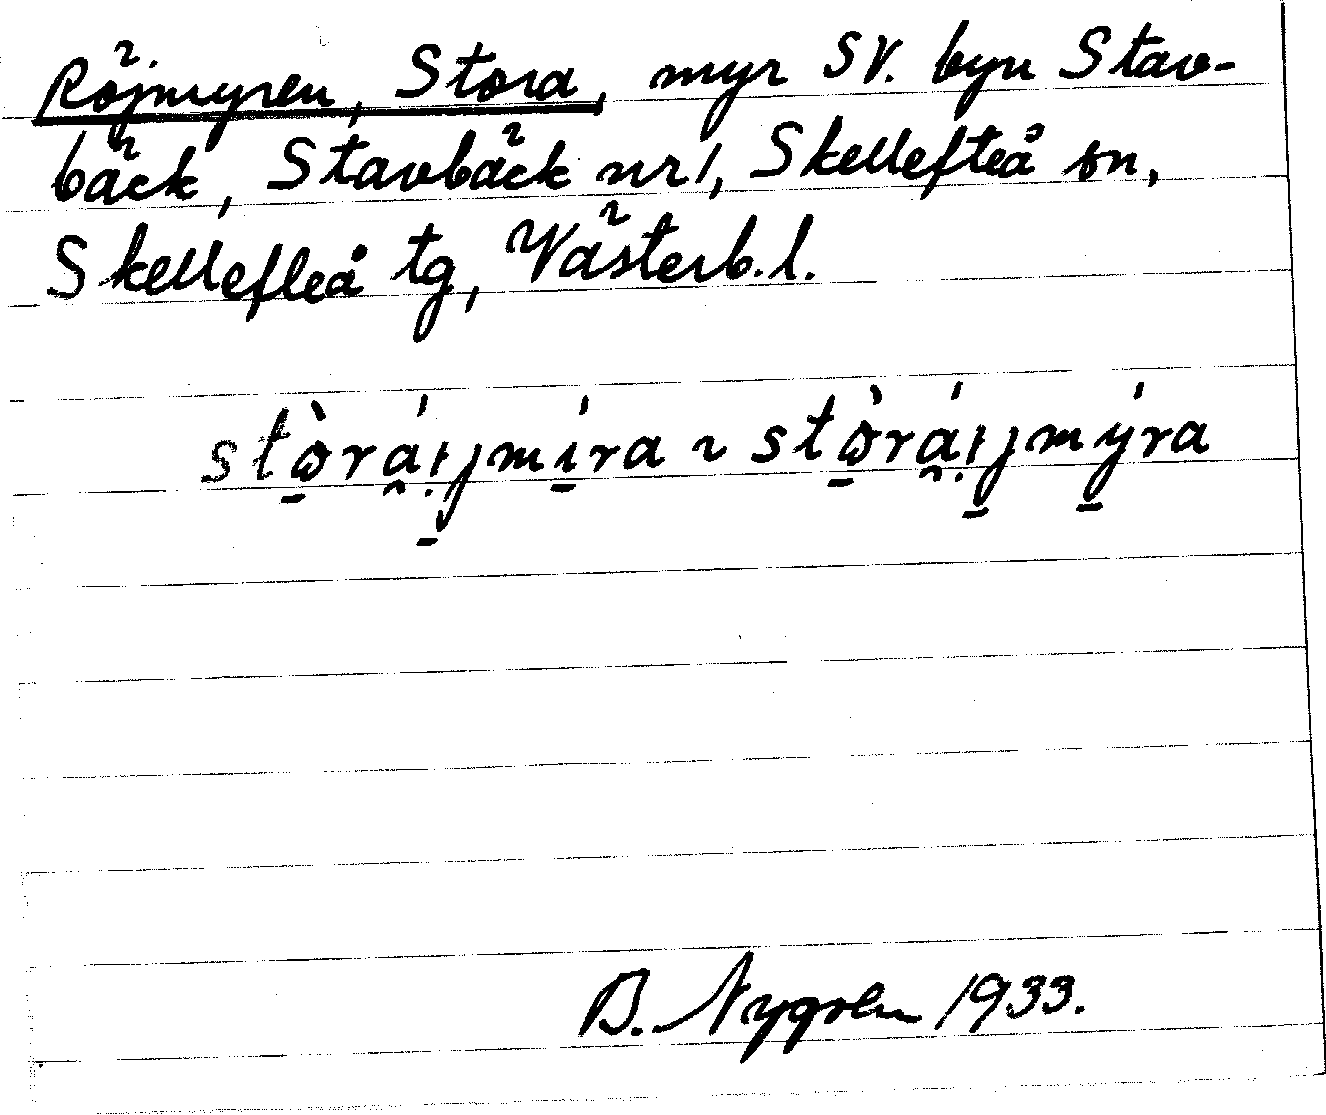 Röjmyren, Stora, myr SV. byn Stav-
bäck, Stavbäck nr 1, Skellefteå sn,
Skellefteå tg, Västerb.l.
stò̱rá̯ı̣j̱mí̱ra ~ stò̱rá̯ı̣j̱mý̱ra
B. Nygren 1933.